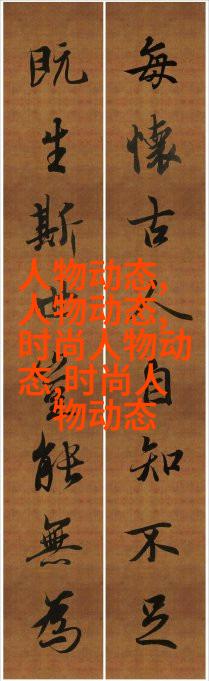 每懷古人自知不足
既生斯世豈能無為
人物动态,
人物动态,
时尚人物动
态,时尚人
物动态